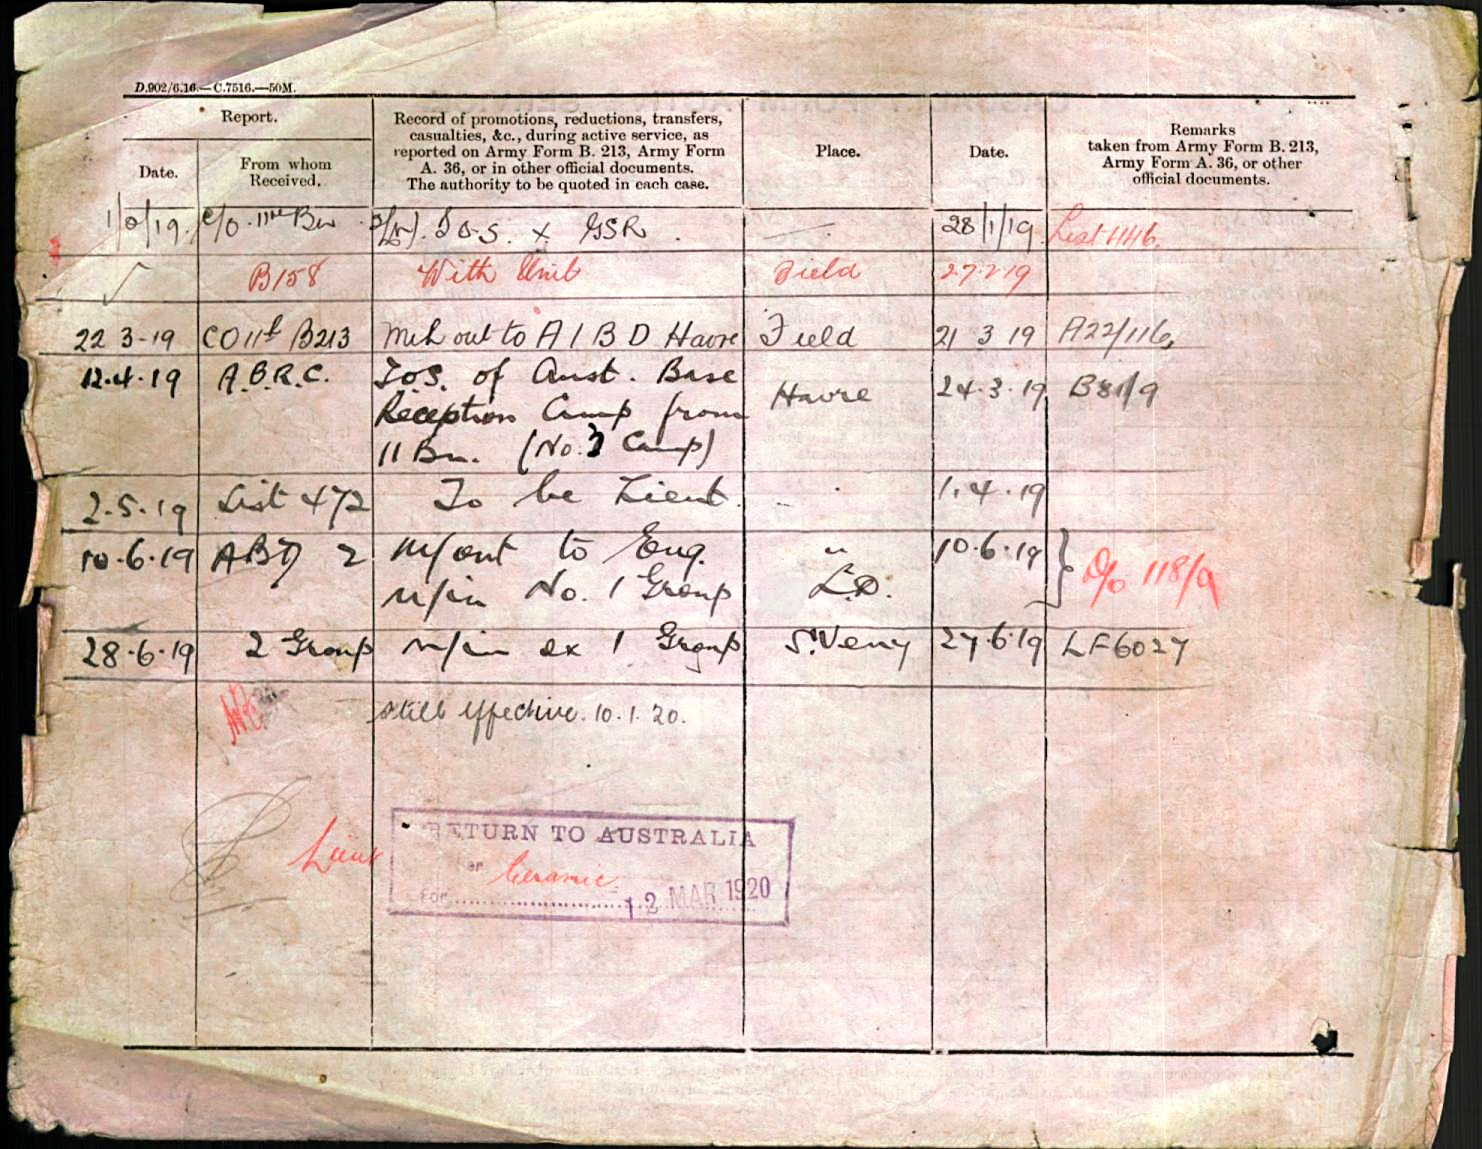 D.902/6.16.—C.7516.—50M.
Report.
Date.
From whom
Received.
Record of promotions, reductions, transfers,
casualties, &c., during active service, as
reported on Army Form B. 213, Army Form
A. 36, or in other official documents.
The authority to be quoted in each case.
Place.
Date.
Remarks
taken from Army Form B. 213,
Army Form A. 36, or other
official documents.
c/o 11th Bn T.O.S. x GSR 28/1/19 List 1146
B158 With Unit Field 27.2.19
22 3-19 CO 11th B213 Mch out to A I B D Havre Field 21 3 19 A22/116
12.4.19 A.B.R.C. T.O.S. of Aust. Base
Reception Camp from Havre 24.3.19 B81/9
11 Bn. (No. 3 Camp)
2.5.19 List 472 To be Lieut. 1.4.19
10.6.19 ABD 2 M/out to Eng. " 10.6.19
M/in No. 1 Group L.D. D/o 118/9
28.6.19 2 Group M/in ex 1 Group S. Veny 27.6.19 LF6027
Still effective. 10.1.20.
Lieut
RETURN TO AUSTRALIA
er Ceramic
FOR 12 MAR 1920